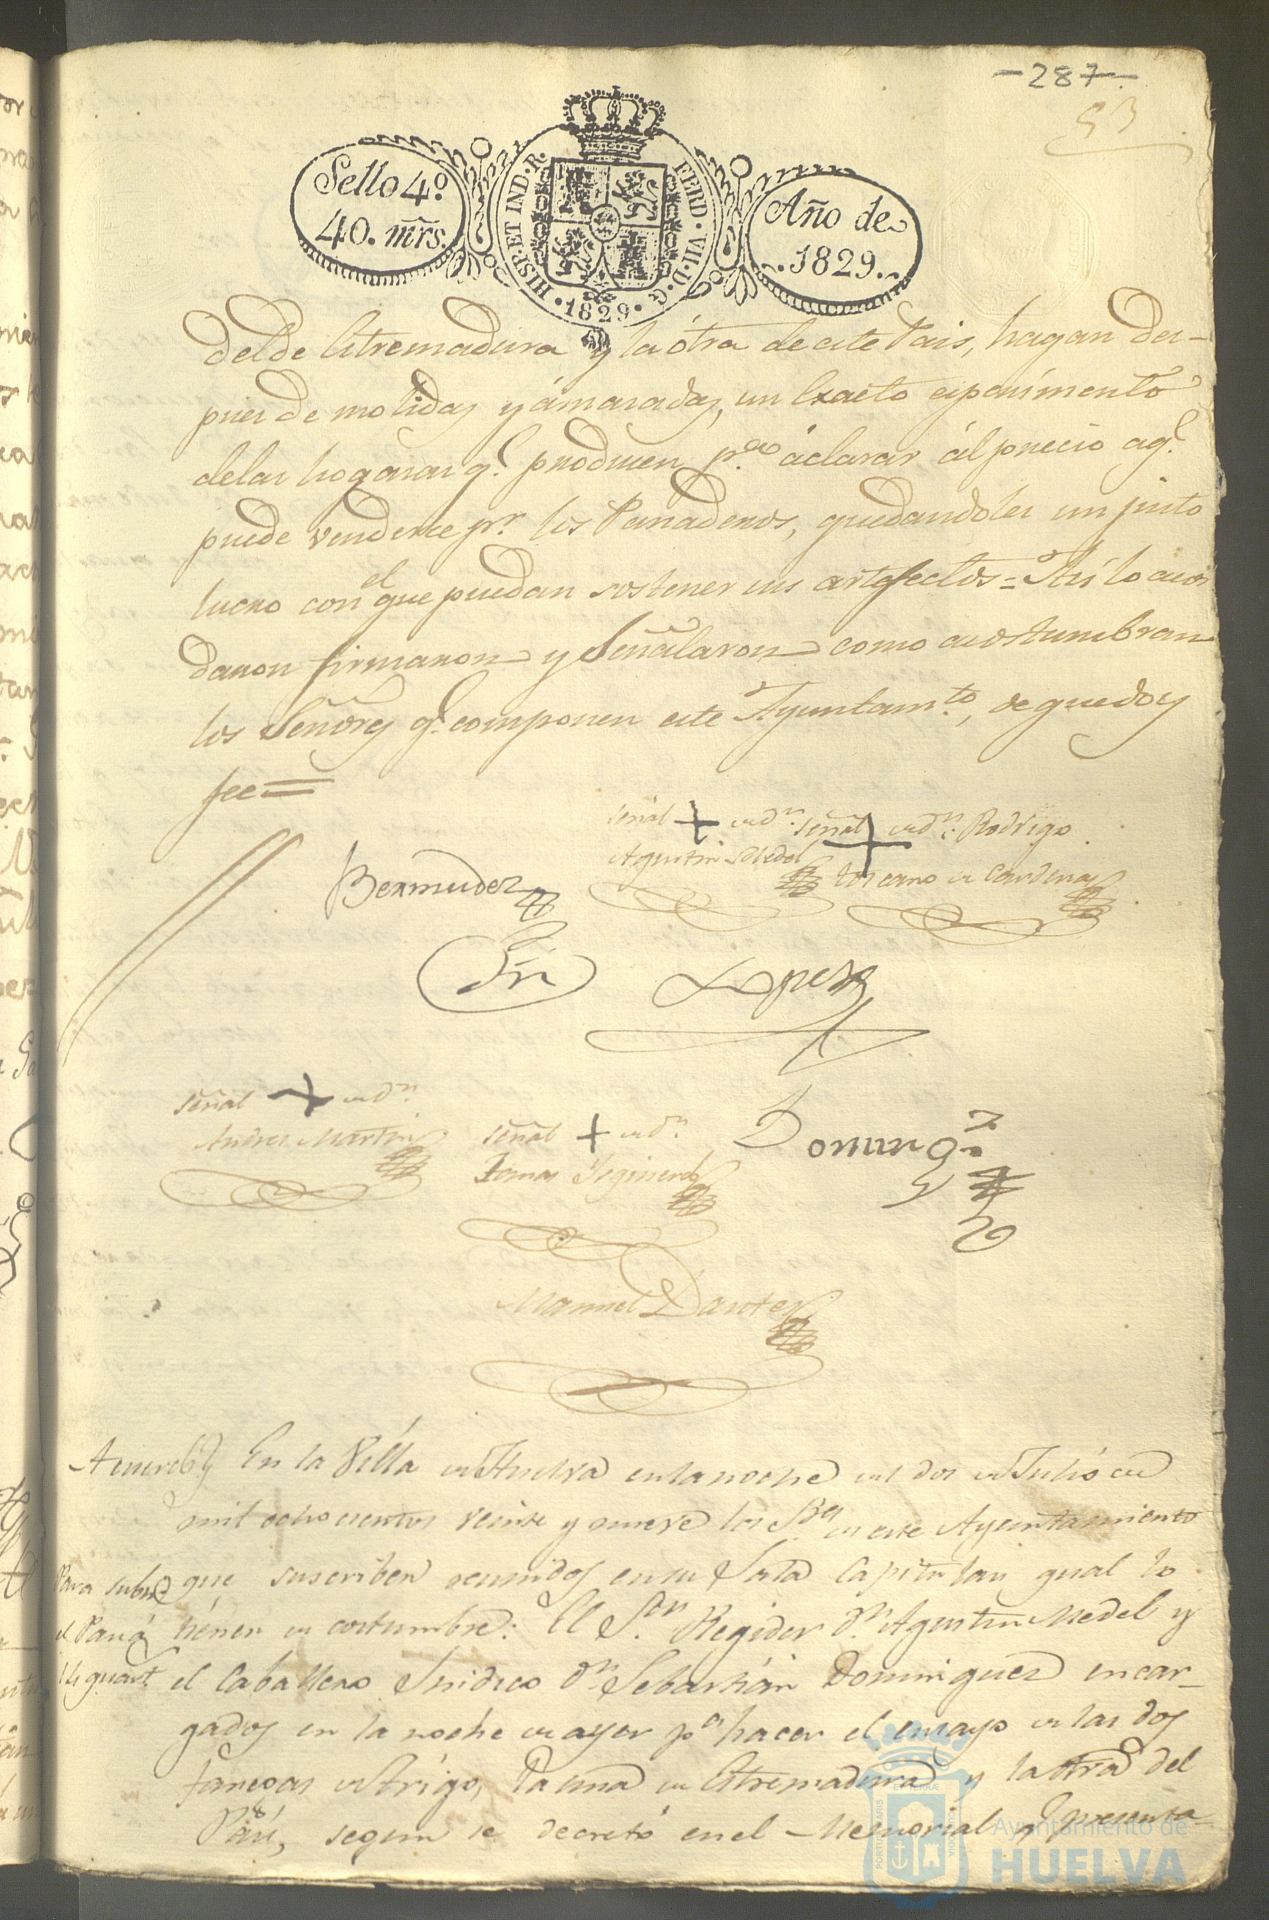 -287-
53
Sello 4º
40. mrs.
HISP. ET IND. R. FERD. VII. D. G. 1829.
Año de
1829.
del de Estremadura y la ótra de este Pais, hagan des-
pues de molidas y ámasadas, un Exacto esperimento
de las hogazas q.e producen p.a áclarar ál precio aq.e
puede venderse p.r los Panaderos, quedandoles un justo
lucro con el que puedan sostener sus artefactos = Así lo acor
daron firmaron y Señalaron como acostumbran
los Señores q.e componen este Ayuntam.to, de que doy
fee =
Señal + de D.n
Agustin Medel
Señal + de D.n Rodrigo
Toscano de Cardenas
Bermudez
Lopez
Señal + de D.n
Andres Martin
Señal + de D.n
Tomas
Doming.z
Manuel
Acuerdo En la Villa de Huelva en la noche del dos de Julio de
mil ochocientos veinte y nueve los S.res de este Ayuntamiento
Para subir
el Pan á
14 quart
que suscriben reunidos en su Sala Capitular qual lo
tienen de costumbre: El S.or Regidor D.n Agustin Medel y
el Caballero Sindico D.n Sebastián Dominguez encar-
gados en la noche de ayer p.a hacer el ensayo de las dos
fanegas de trigo, la una de Estremadura y la otra del
Pais, segun se decretó en el Memorial q.e presenta
Ayuntamiento de
HUELVA